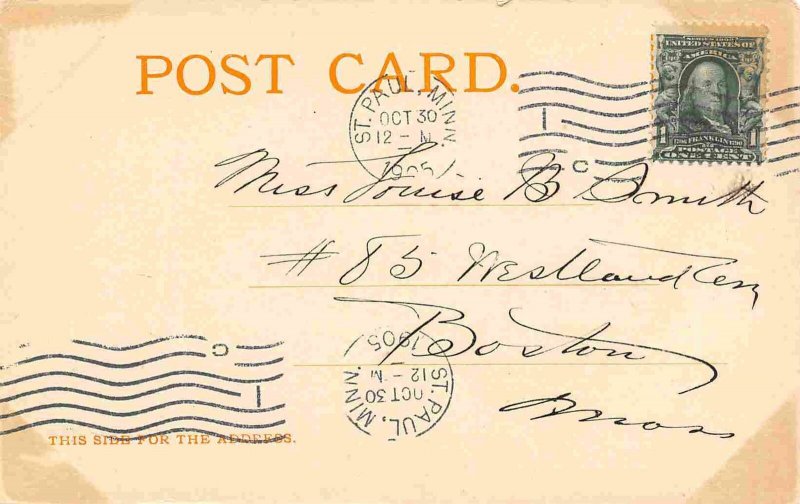 POST CARD.
SERIES 1902
UNITED STATES OF
AMERICA
1706 FRANKLIN 1790
1 POSTAGE 1
ONE CENT
ST. PAUL, MINN.
OCT 30
12 - M
1905
1
C
Miss Louise B Smith
# 85 Westland Ave
Boston
Mass
C
1
ST. PAUL, MINN.
OCT 30
12 - M
1905
THIS SIDE FOR THE ADDRESS.